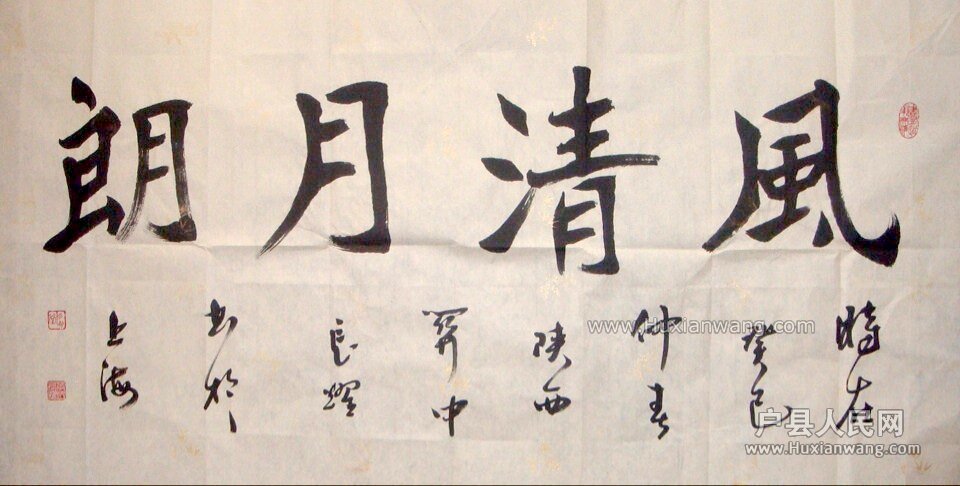 風清月朗
時在
癸巳
仲春
陕西
關中
長耀
書於
上海
www.Huxianwang.com
户县人民网
www.Huxianwang.com